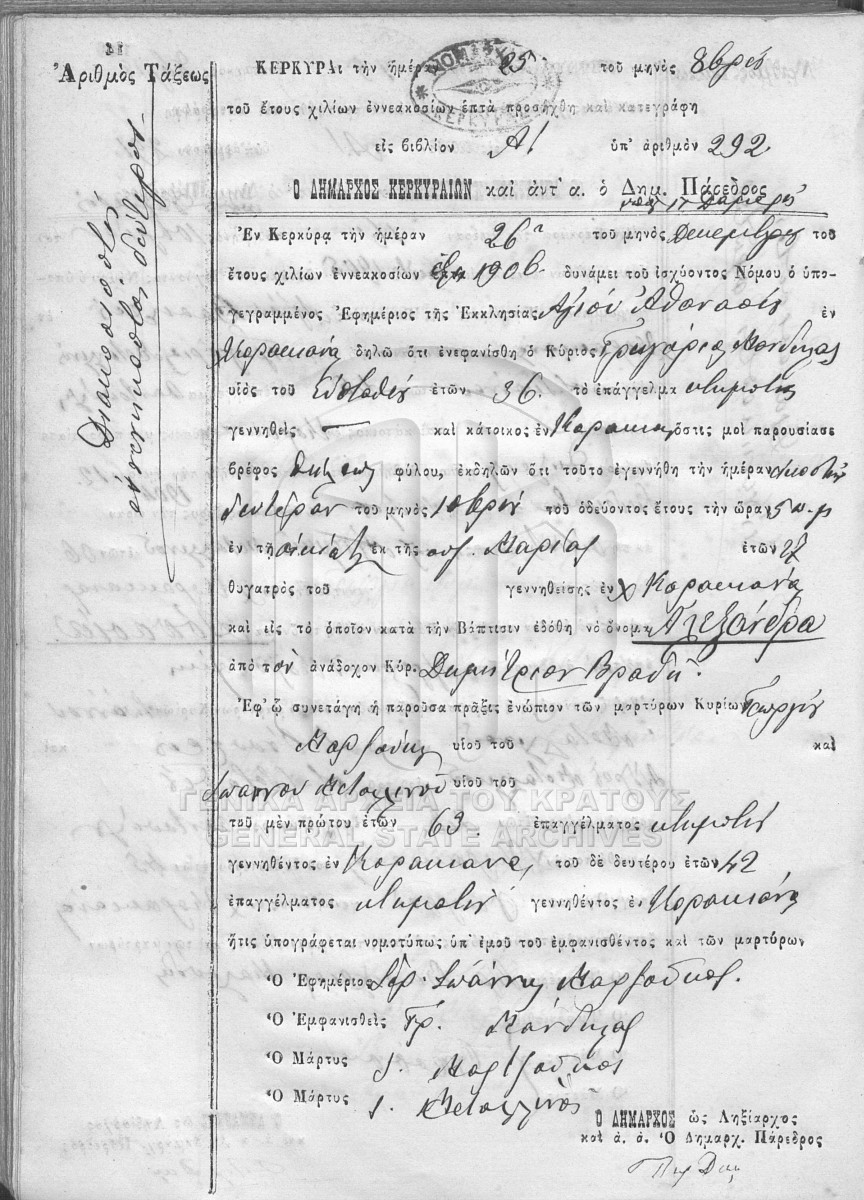 Ἀριθμὸς Τάξεως
Διακοσιοστὸς
ἐνενηκοστὸς δεύτερος
ΚΕΡΚΥΡΑι τὴν ἡμέραν 25 τοῦ μηνὸς 8βρίου
τοῦ ἔτους χιλίων ἐννεακοσίων ἑπτὰ προσήχθη καὶ κατεγράφη
εἰς βιβλίον Α! ὑπ' ἀριθμὸν 292
Ο ΔΗΜΑΡΧΟΣ ΚΕΡΚΥΡΑΙΩΝ καὶ ἀντ' α. ὁ Δημ. Πάρεδρος
Ἐν Κερκύρᾳ τὴν ἡμέραν 26η τοῦ μηνὸς Δεκεμβρίου τοῦ
ἔτους χιλίων ἐννεακοσίων 1906 δυνάμει τοῦ ἰσχύοντος Νόμου ὁ ὑπο-
γεγραμμένος Ἐφημέριος τῆς Ἐκκλησίας Ἁγίου Ἀθανασίου ἐν
Κορακιάνᾳ δηλῶ ὅτι ἐνεφανίσθη ὁ Κύριος Γρηγόριος Μάνδηλας
υἱὸς τοῦ Εὐσταθίου ἐτῶν 36. τὸ ἐπάγγελμα κτηματίας
γεννηθεὶς — καὶ κάτοικος ἐν Κορακιάνᾳ, ὅστις μοὶ παρουσίασε
βρέφος θήλεως φύλου, ἐκδηλῶν ὅτι τοῦτο ἐγεννήθη τὴν ἡμέραν εἰκοστὴν
δευτέραν τοῦ μηνὸς 10βρίου τοῦ ὁδεύοντος ἔτους τὴν ὥραν 5 π.μ
ἐν τῇ οἰκίᾳ ἐκ τῆς συζ. Μαρίας ἐτῶν 27
θυγατρὸς τοῦ γεννηθείσης ἐν χ Κορακιάνᾳ
καὶ εἰς τὸ ὁποῖον κατὰ τὴν Βάπτισιν ἐδόθη τὸ ὄνομα Ἀλεξάνδρα
ἀπὸ τὸν ἀνάδοχον Κύρ. Δημήτριον Βραδῆ.
Ἐφ' ᾧ συνετάγη ἡ παροῦσα πρᾶξις ἐνώπιον τῶν μαρτύρων Κυρίων Γεωργίου
υἱοῦ τοῦ καὶ
Ἰωάννου Μεταλληνοῦ υἱοῦ τοῦ
τοῦ μὲν πρώτου ἐτῶν 63. ἐπαγγέλματος κτηματίου
γεννηθέντος ἐν Κορακιάνᾳ, τοῦ δὲ δευτέρου ἐτῶν 42
ἐπαγγέλματος κτηματίου γεννηθέντος ἐν Κορακιάνᾳ
ἥτις ὑπογράφεται νομοτύπως ὑπ' ἐμοῦ τοῦ ἐμφανισθέντος καὶ τῶν μαρτύρων
Ὁ Ἐφημέριος Ἱερ. Ἰωάννης
Ὁ Ἐμφανισθεὶς Γρ. Μάνδηλας
Ὁ Μάρτυς
Ὁ Μάρτυς Ι. Μεταλληνὸς
Ο ΔΗΜΑΡΧΟΣ ὡς Ληξίαρχος
καὶ ἀ. ἀ. Ὁ Δημαρχ. Πάρεδρος
ΓΕΝΙΚΑ ΑΡΧΕΙΑ ΤΟΥ ΚΡΑΤΟΥΣ
GENERAL STATE ARCHIVES